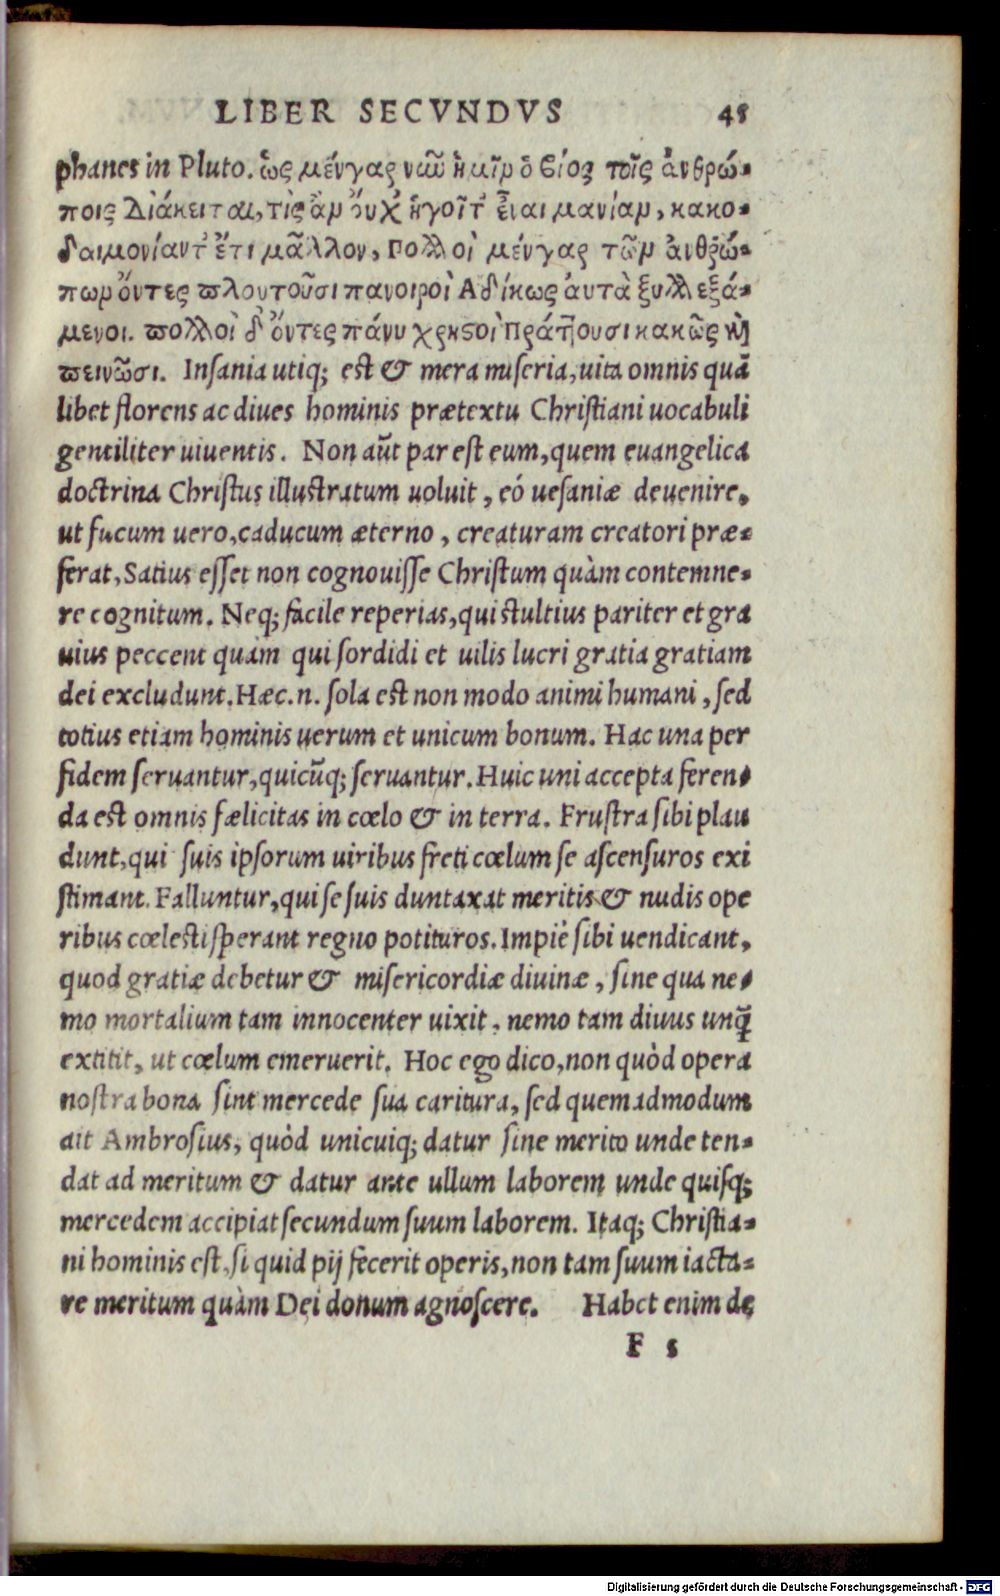 LIBER SECVNDVS 45
phanes in Pluto. ὡς μένγαρ νῶϊ ἡμῖν ὁ βίος τοῖς ἀνθρώ-
ποις Διάκειται, τίς ἀμ οὐχ ἡγοῖτ εἶναι μανίαν, κακο-
δαιμονίαντ ἔτι μᾶλλον, Πολλοὶ μένγαρ τῶν ἀνθρώ-
πων ὄντες πλουτοῦσι πανοιροὶ Αδίκως ἀυτὰ ξυλλεξά-
μενοι. πολλοὶ δ ὄντες πάνυ χρηςοὶ Πράττουσι κακῶς κỳ
πεινῶσι. Insania utiq; est & mera miseria, uita omnis quā
libet florens ac diues hominis prætextu Christiani uocabuli
gentiliter uiuentis. Non aūt par est eum, quem euangelica
doctrina Christus illustratum uoluit, eó uesaniæ deuenire,
ut fucum uero, caducum æterno, creaturam creatori præ-
ferat, Satius esset non cognouisse Christum quàm contemne-
re cognitum. Neq; facile reperias, qui stultius pariter et gra
uius peccent quàm qui sordidi et uilis lucri gratia gratiam
dei excludunt. Hæc.n. sola est non modo animi humani, sed
totius etiam hominis uerum et unicum bonum. Hac una per
fidem seruantur, quicūq; seruantur. Huic uni accepta feren-
da est omnis fælicitas in cœlo & in terra. Frustra sibi plau
dunt, qui suis ipsorum uiribus freti cœlum se ascensuros exi
stimant. Falluntur, qui se suis duntaxat meritis & nudis ope
ribus cœlesti sperant regno potituros. Impiè sibi uendicant,
quod gratiæ debetur & misericordiæ diuinæ, sine qua ne-
mo mortalium tam innocenter uixit, nemo tam diuus unq̃
extitit, ut cœlum emeruerit. Hoc ego dico, non quòd opera
nostra bona sint mercede sua caritura, sed quemadmodum
ait Ambrosius, quòd unicuiq; datur sine merito unde ten-
dat ad meritum & datur ante ullum laborem unde quisq;
mercedem accipiat secundum suum laborem. Itaq; Christia-
ni hominis est, si quid pij fecerit operis, non tam suum iacta-
re meritum quàm Dei donum agnoscere. Habet enim de
F 5
Digitalisierung gefördert durch die Deutsche Forschungsgemeinschaft - DFG